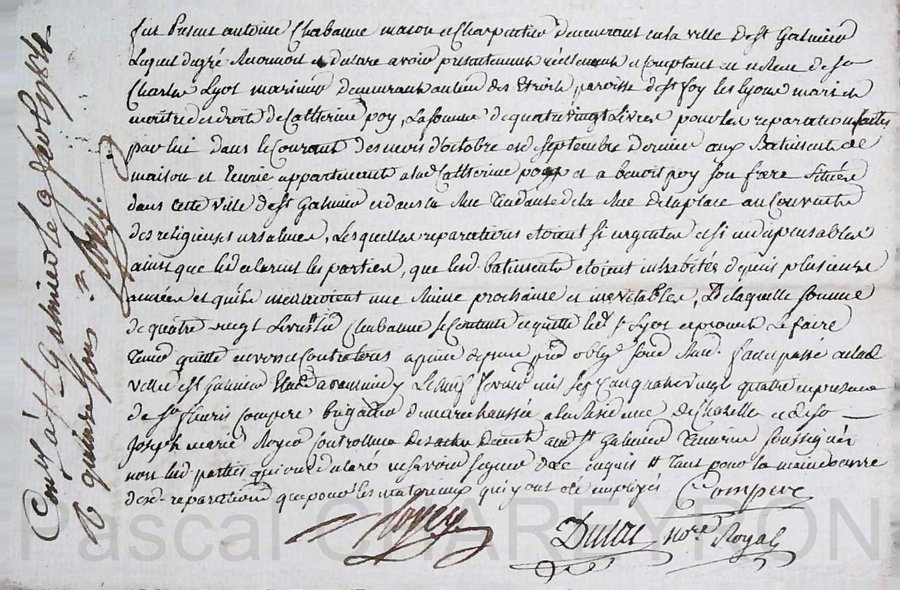 fut Present antoine Chabanne mason et Charpentier demeurant en la ville de St Galmier
Lequel de gré Reconnoit et declare avoir presentement réellement et Comptant et reseu de sr
Charles Lyot marinier demeurant au lieu des Etroits paroisse de ste foy les lyons mari et
maitre des droits de Catherine poy, La somme de quatre vingt Livres pour les reparations faites
par lui dans le Courant des mois d'octobre et de Septembre Dernier aux Batiments de
maison et appartenant a lad Catherine poy et a benoit poy son frere Situées
dans cette ville de St Galmier et dans la Rue Tendante de la Rue de la place au Couvent
des religieuses ursulines, Lesquelles reparations etoient si urgentes et si indispensables
ainsi que le declarent les parties, que lesd batiments etoient inhabités depuis plusieurs
années et qu'ils menacoient une Ruine prochaine et inevitable, De laquelle somme
de quatre vingt Livres led Chabanne se Contente et quitte led sr Lyot et promet Le faire
Tenir quitte envers et Contre tous a peine de fait et passé aud
ville de St Galmier Etude Le neuf fevrier mil sept cent quatre vingt quatre en presence
de sr fleuris Compere brigadier de marechaussée a la Residence de Chazelle et de sr
Joseph marie Royer Controlleur des actes Demt aud St Galmier Temoins soussignés
non led parties qui ont declaré ne savoir signer de ce enquis Tant pour la main d'oeuvre
desd. reparations que pour les materiaux qui y ont été employés Compere
Royer
Dulac nore Royal
Conlé a St Galmier le 9 fevr 1784
R quinze sous
Royer
Pascal CHAREYRON